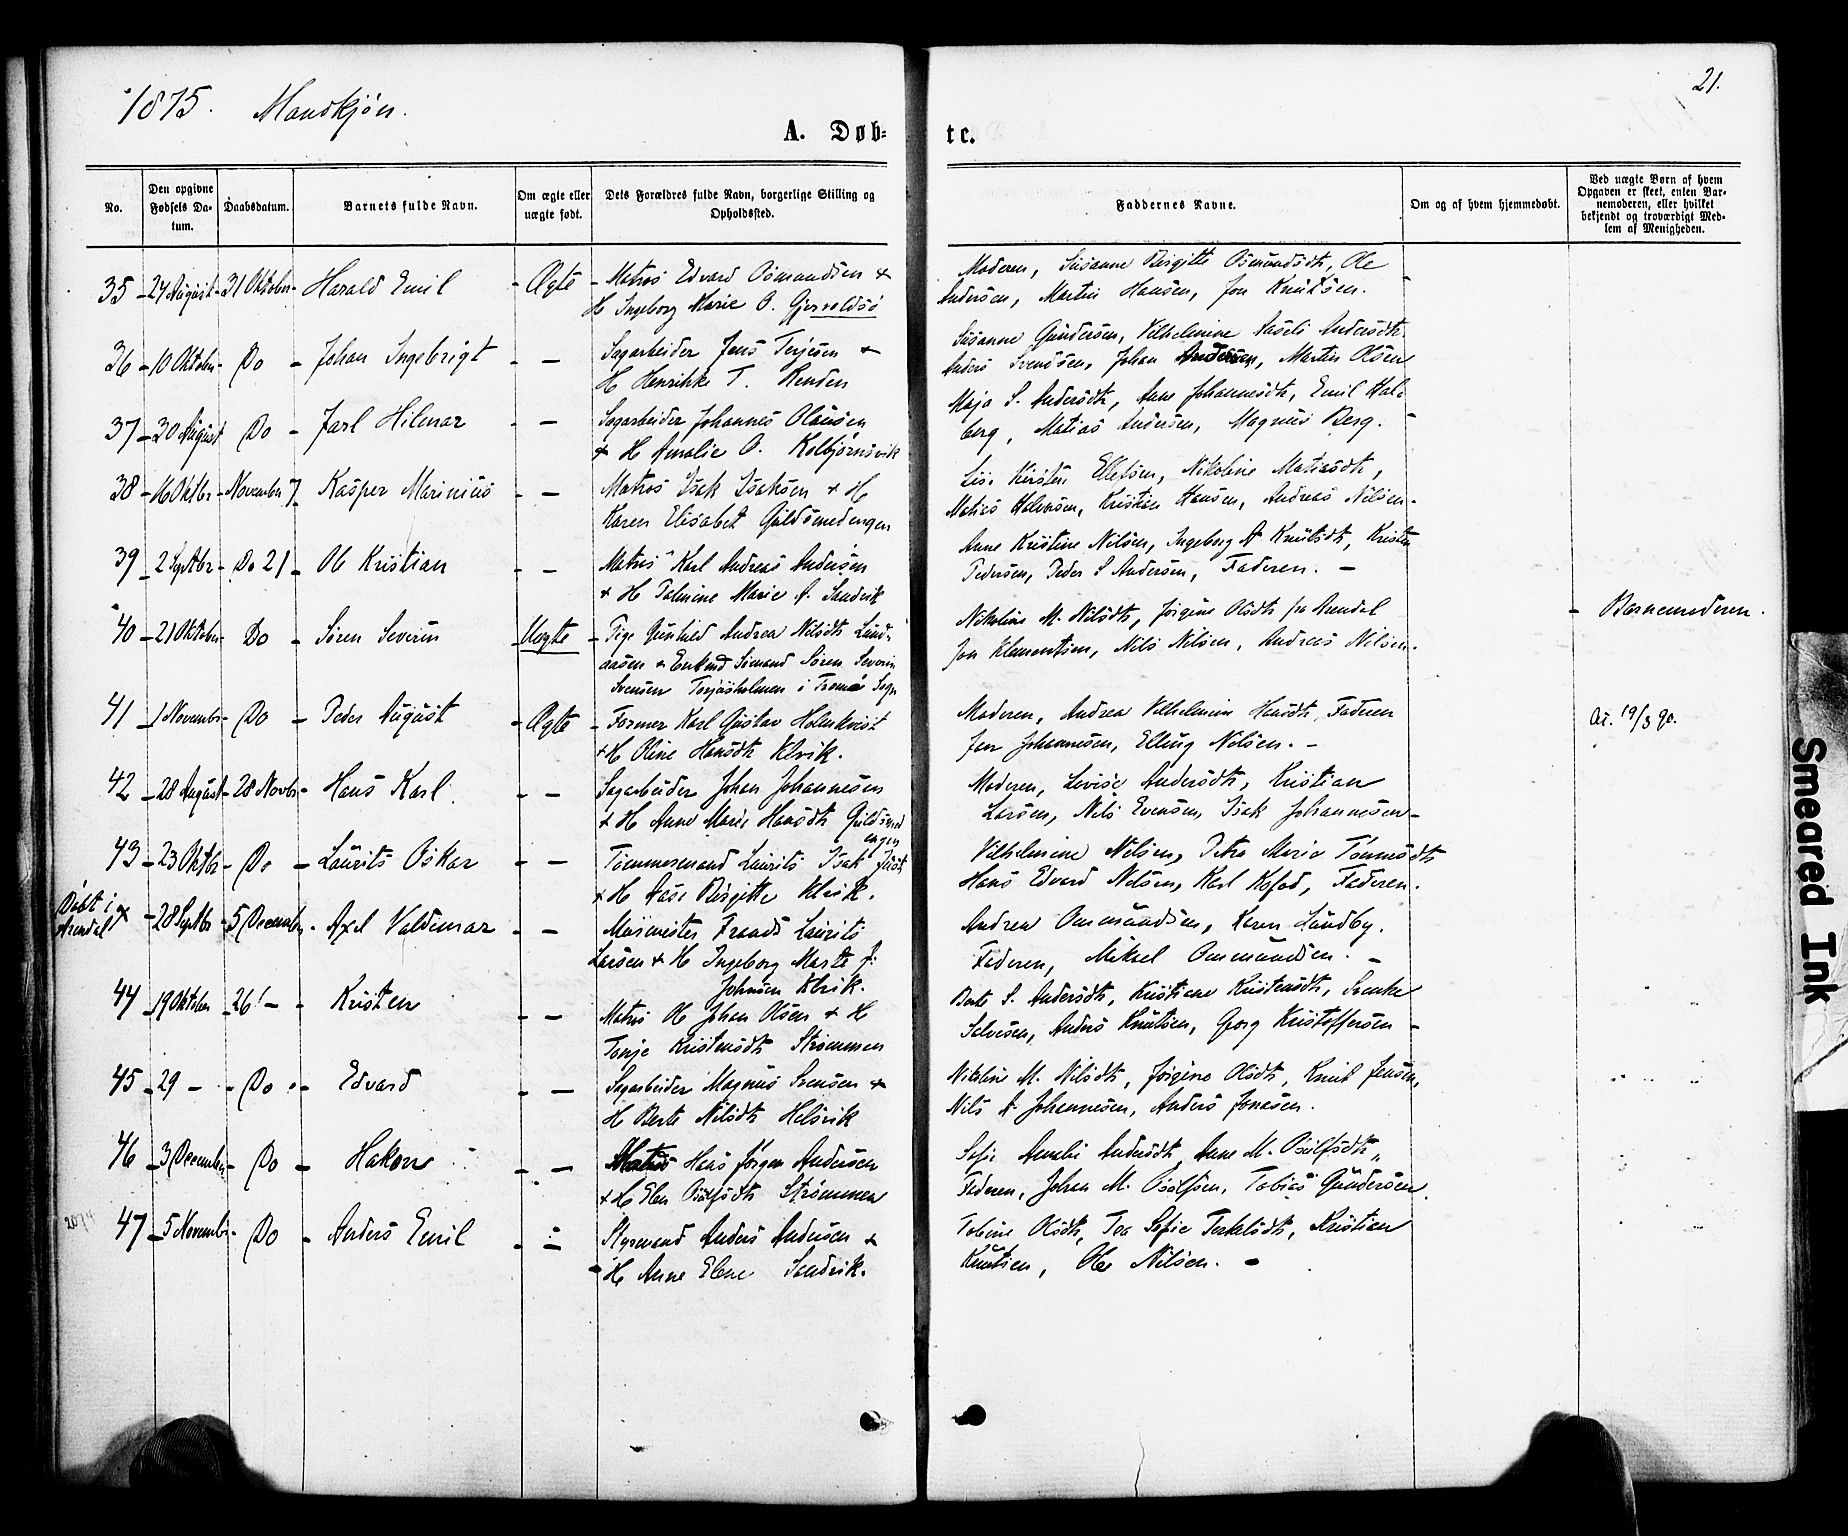 1875. Mandkjøn.
21.
A. Døb-
te.
No.
Den opgivne
Fødsels Da-
tum.
Daabsdatum.
Barnets fulde Navn.
Om ægte eller
uægte født.
Dets Forældres fulde Navn, borgerlige Stilling og
Opholdssted.
Faddernes Navne.
Om og af hvem hjemmedøbt.
Ved uægte Børn af hvem
Opgaven er skeet, enten Bar-
nemoderen, eller hvilket
bekjendt og troværdigt Med-
lem af Menigheden.
35 - 24 August - 31 Oktober - Harald Emil - Ægte - Matros Edvard Osmundsen +
H Ingeborg Marie O. Gjervoldsø
Moderen, Susanne Birgitte Osmundsdtr, Ole
Andersen, Martin Hansen, Jon Knutsen.
36 - 10 Oktober - Do - Johan Ingebrigt - - Sagarbeider Jens Terjesen +
H Henrikke T. Renden
Susanne Gundersen, Vilhelmine Andersdtr.
Anders Svendsen, Johan Andersen, Martin Olsen
37 - 30 August - Do - Jarl Hilmar - - Sagarbeider Johannes Olausen
+ H Amalie O. Kolbjørnsvik
Maja S. Andersdtr, Anne Johannesdtr, Emil Hal-
berg, Matias Andersen, Magnus Berg.
38 - 16 Oktbr - November 7 - Kasper Marinius - - Matros Isak Isaksen + H
Karen Elisabet Guldsmedengen
Kirsten Ellefsen, Nikoline Matiasdtr,
Matias Halvorsen, Kristian Hansen, Andreas Nilsen -
39 - 2 Septbr - Do 21 - Ole Kristian - - Matros Karl Andreas Andersen
+ H Palmine Marie A. Sandvik
Anne Kristine Nilsen, Ingeborg A Knutsdtr, Kristen
Pedersen, Peder S Andersen, Faderen. -
40 - 21 Oktober - Do - Søren Severin Uægte - Pige Gunhild Andrea Nilsdtr Lund-
aasen + Enkemd Sømand Søren Severin
Svensen Torjusholmen i Tromø Sogn
Nikoline M. Nilsdtr, Jørgine Olsdtr fra Arendal
Jon Klementsen, Nils Nilsen, Andreas Nilsen.
- Barnemoderen.
41 - 1 Novembr - Do - Peder August - Ægte - Former Karl Gustav Holmkvist
+ H Oline Hansdtr Kløvik.
Moderen, Andrea Vilhelmine Hansdtr, Faderen
Jens Johannesen, Elling Nilsen. -
At. 19/3 90.
42 - 28 August - 28 Novbr - Hans Karl. - - Sagarbeider Johan Johannesen
+ H Anne Marie Hansdtr Guldsmed
engen
Moderen, Lovise Andersdtr, Kristian
Larsen, Nils Evensen, Isak Johannesen -
43 - 23 Oktbr - Do - Laurits Oskar - - Tømmermand Laurits Isak Just
+ H Aase Birgitte Kløvik.
Vilhelmine Nilsen, Petra Marie Tønnesdtr
Hans Edvard Nelsen, Karl Kofod, Faderen.
Døbt i
Arendal
- 28 Septbr - 5 December - Axel Valdemar - - Murmester Frands Laurits
Larsen + H Ingeborg Marte J.
Johnsen Kløvik.
Andrea Ommundsen, Karen Lundby.
Faderen, Mikael Ommundsen. -
44 - 19 Oktober - 26 - - Kristen - - Matros Ole Johan Olsen + H
Tonje Kristensdtr Strømmen
Berte S. Andersdtr, Kristiane Kristensdtr, Svenke
Salvesen, Anders Knutsen, Georg Kristoffersen -
45 - 29 - - Do - Edvard - - Sagarbeider Magnus Svensen +
H Berte Nilsdtr Helsvik
Nikoline M. Nilsdtr, Jørgine Olsdtr, Knut Jensen,
Nils A Johannesen, Anders Jonasen.
46 - 3 December - Do - Hakon - - Matros Hans Jørgen Andersen
+ H Elen Osulfsdtr Strømmen
Sofie Amalie Andersdtr, Anne M. Osulfsdtr,
Faderen, Johan M. Osulfsen, Tobias Gundersen.
47 - 5 Novembr - Do - Anders Emil - - Styrmand Anders Andersen +
H Anne Elene Sandvik.
Tobine Olsdtr, Tea Sofie Terkelsdtr, Kristian
Knutsen, Ole Nilsen. -
Smeared Ink